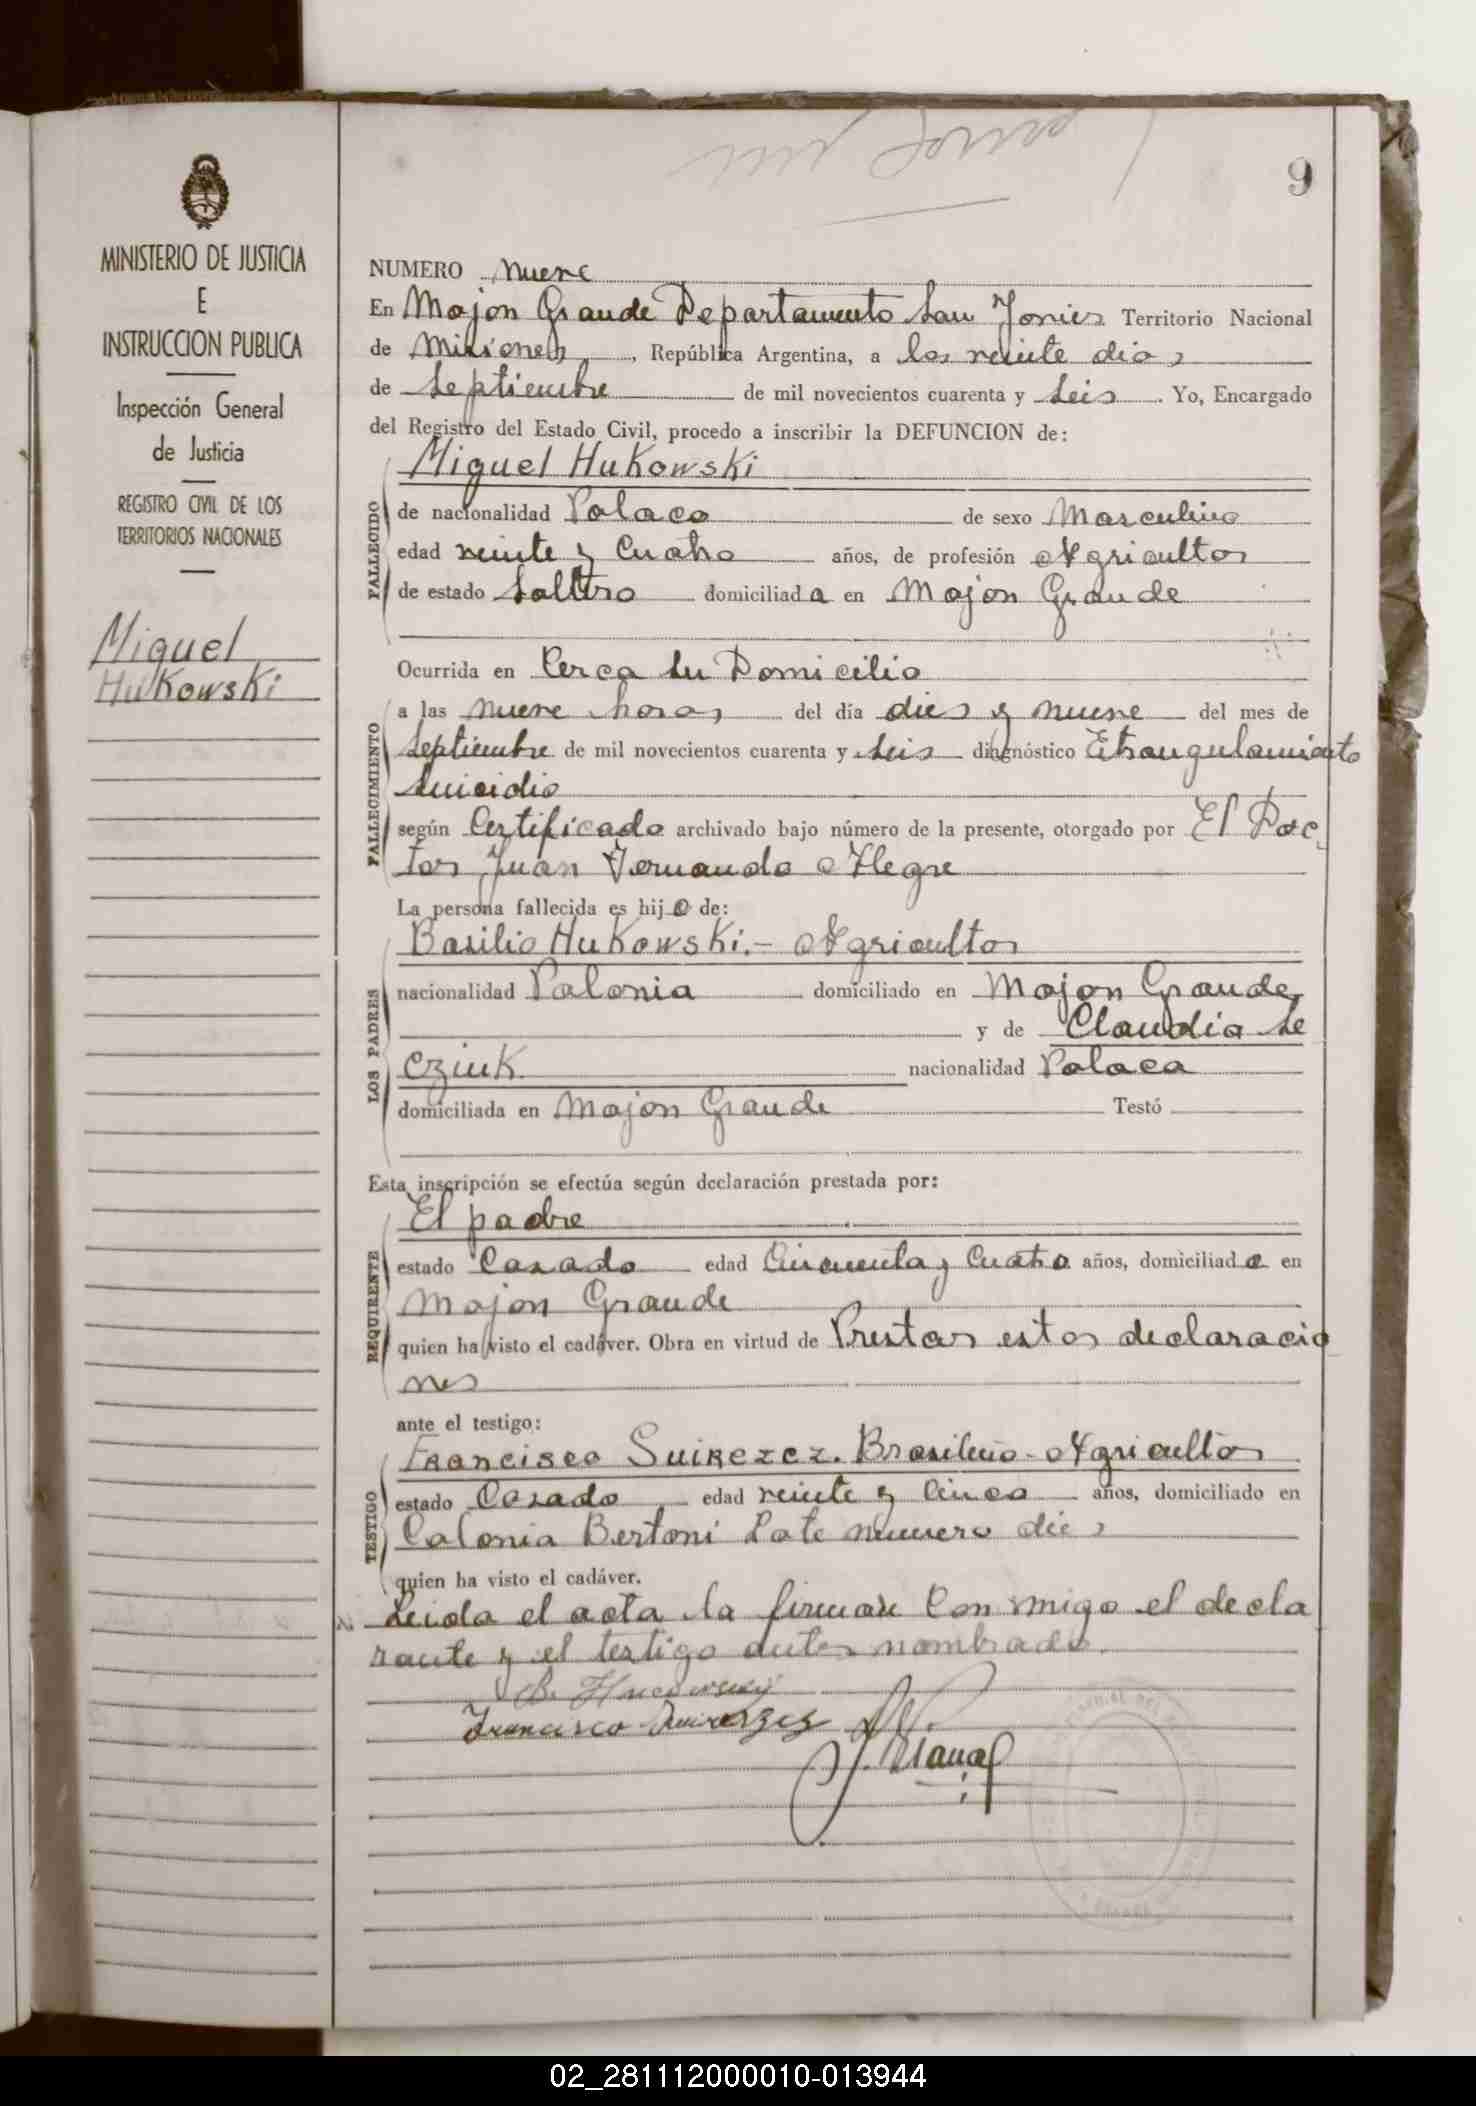 9
MINISTERIO DE JUSTICIA
E
INSTRUCCION PUBLICA
Inspección General
de Justicia
REGISTRO CIVIL DE LOS
TERRITORIOS NACIONALES
Miguel
Hukowski
NUMERO nueve
En Mojon Grande Departamento San Javier Territorio Nacional
de Misiones, República Argentina, a los veinte dias
de Septiembre de mil novecientos cuarenta y seis. Yo, Encargado
del Registro del Estado Civil, procedo a inscribir la DEFUNCION de:
Miguel Hukowski
FALLECIDO
de nacionalidad Polaco de sexo Masculino
edad veinte y Cuatro años, de profesión Agricultor
de estado Soltero domiciliada en Mojon Grande
Ocurrida en Cerca su Domicilio
FALLECIMIENTO
a las nueve horas del día dies y nueve del mes de
Septiembre de mil novecientos cuarenta y seis diagnóstico Etrangulamiento
Suicidio
según Certificado archivado bajo número de la presente, otorgado por El Doc
tor Juan Fernando Alegre
La persona fallecida es hijo de:
LOS PADRES
Basilio Hukowski.- Agricultor
nacionalidad Polonia domiciliado en Mojon Grande
y de Claudia Se
cziuk nacionalidad Polaca
domiciliada en Mojon Grande Testó
Esta inscripción se efectúa según declaración prestada por:
REQUIRENTE
El padre
estado Casado edad Cincuenta y Cuatro años, domiciliado en
Mojon Grande
quien ha visto el cadáver. Obra en virtud de Prestar estas declaracio
nes
ante el testigo:
TESTIGO
Francisco Suirezez. Brasileño - Agricultor
estado Casado edad veinte y Cinco años, domiciliado en
Colonia Bertoni Lote numero dies
quien ha visto el cadáver.
Leida el acta la firman Conmigo el decla
rante y el testigo antes nombrado.
Francisco